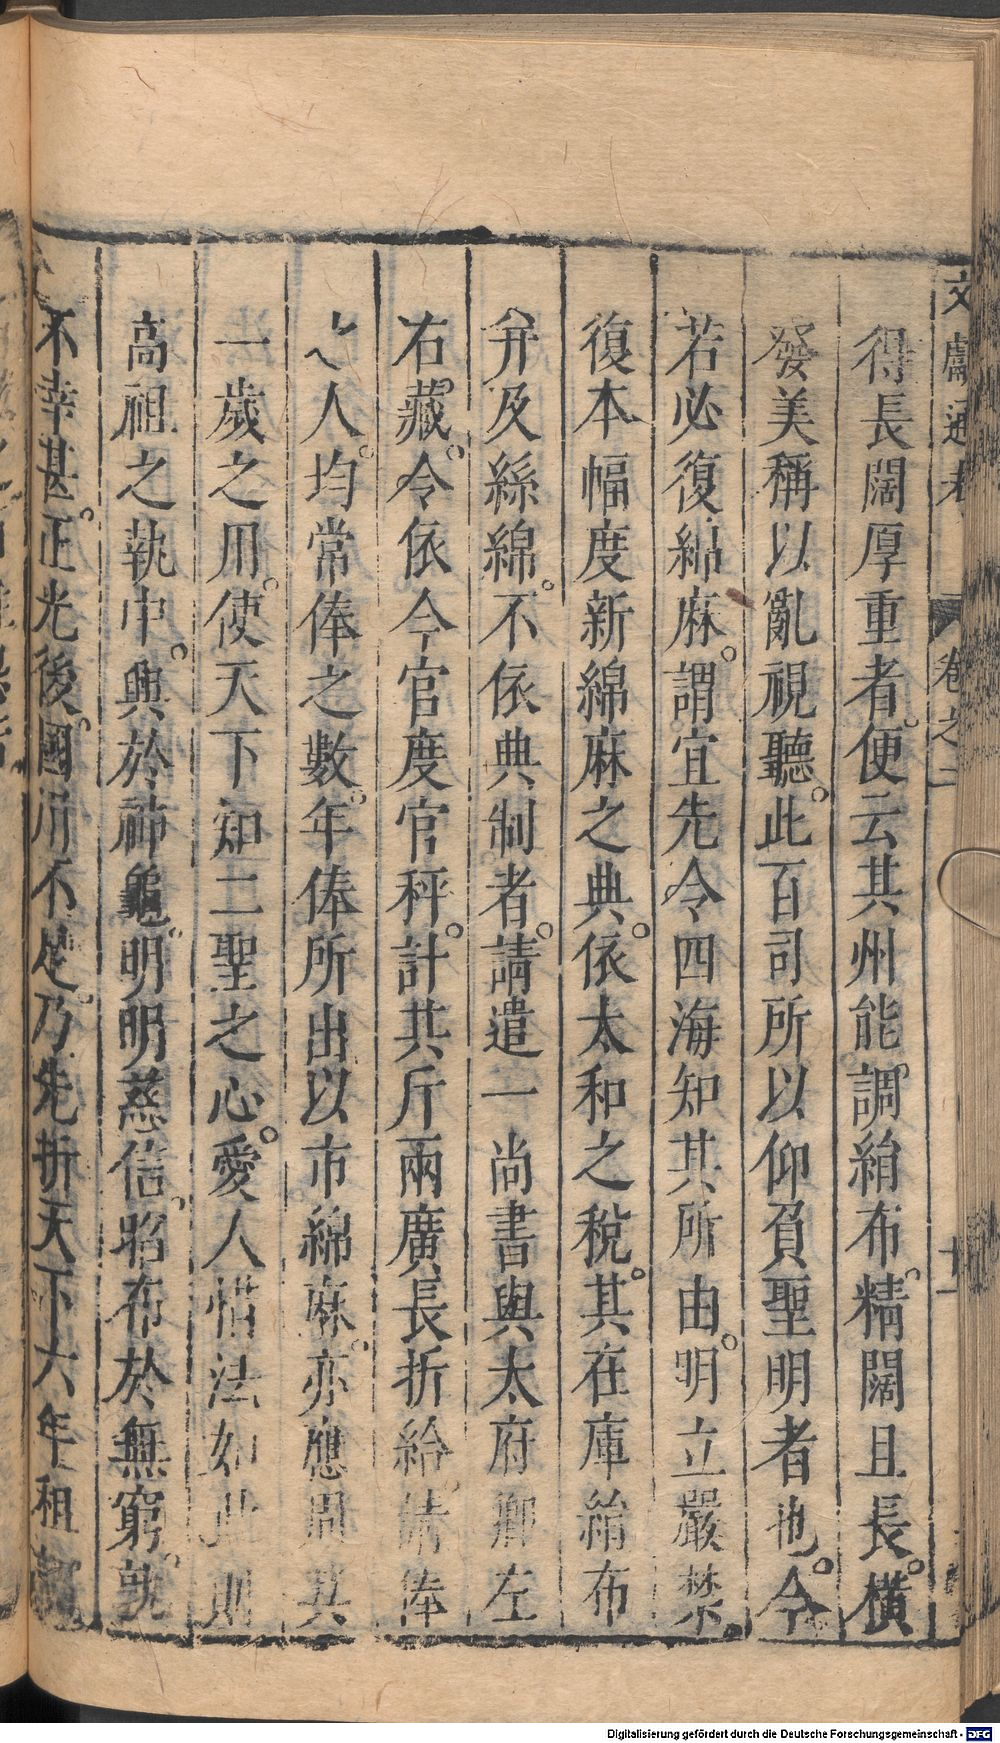 文獻通考 卷之二 十一
得長闊厚重者。便云其州能。調絹布。精闊且長。橫
發美稱以亂視聽。此百司所以仰負聖明者也。今
若必復綿麻。謂宜先令四海知其所由。明立嚴禁。
復本幅度新綿麻之典。依太和之稅。其在庫絹布
弁及絲綿。不依典制者。請遣一尚書與太府卿左
右藏。令依今官度官秤。計其斤兩廣長折給。請俸
之人。均常俸之數。年俸所出以市綿麻。亦應周其
一歲之用。使天下知二聖之心。愛人惜法如此則
高祖之執中。興於神龜。明明慈信。昭布於無窮。孰
不幸甚。正光後。國用不足。乃先折天下六年租調
Digitalisierung gefördert durch die Deutsche Forschungsgemeinschaft - DFG